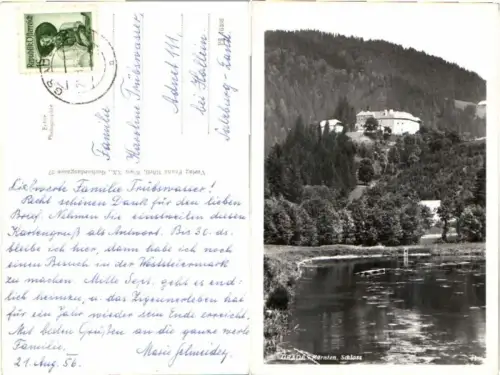 Republik Österreich
Familie
Karoline Trübswasser
Adnet 111,
bei Hallein
Salzburg-Land.
Echte
Photographie
Verlag Franz Wien VII.,
Liebwerte Familie Trübswasser!
Recht schönen Dank für den lieben
Brief. Nehmen Sie einstweilen diesen
Kartengruß als Antwort. Bis 30. ds.
bleibe ich hier, dann habe ich noch
einen Besuch in der Weststeiermark
zu machen. Mitte Sept. geht es end-
lich heimzu, u. das Zigeunerleben hat
für ein Jahr wieder sein Ende erreicht.
Mit lieben Grüßen an die ganze werte
Familie.
Marie
21. Aug. 56.
GRADES, Kärnten, Schloss